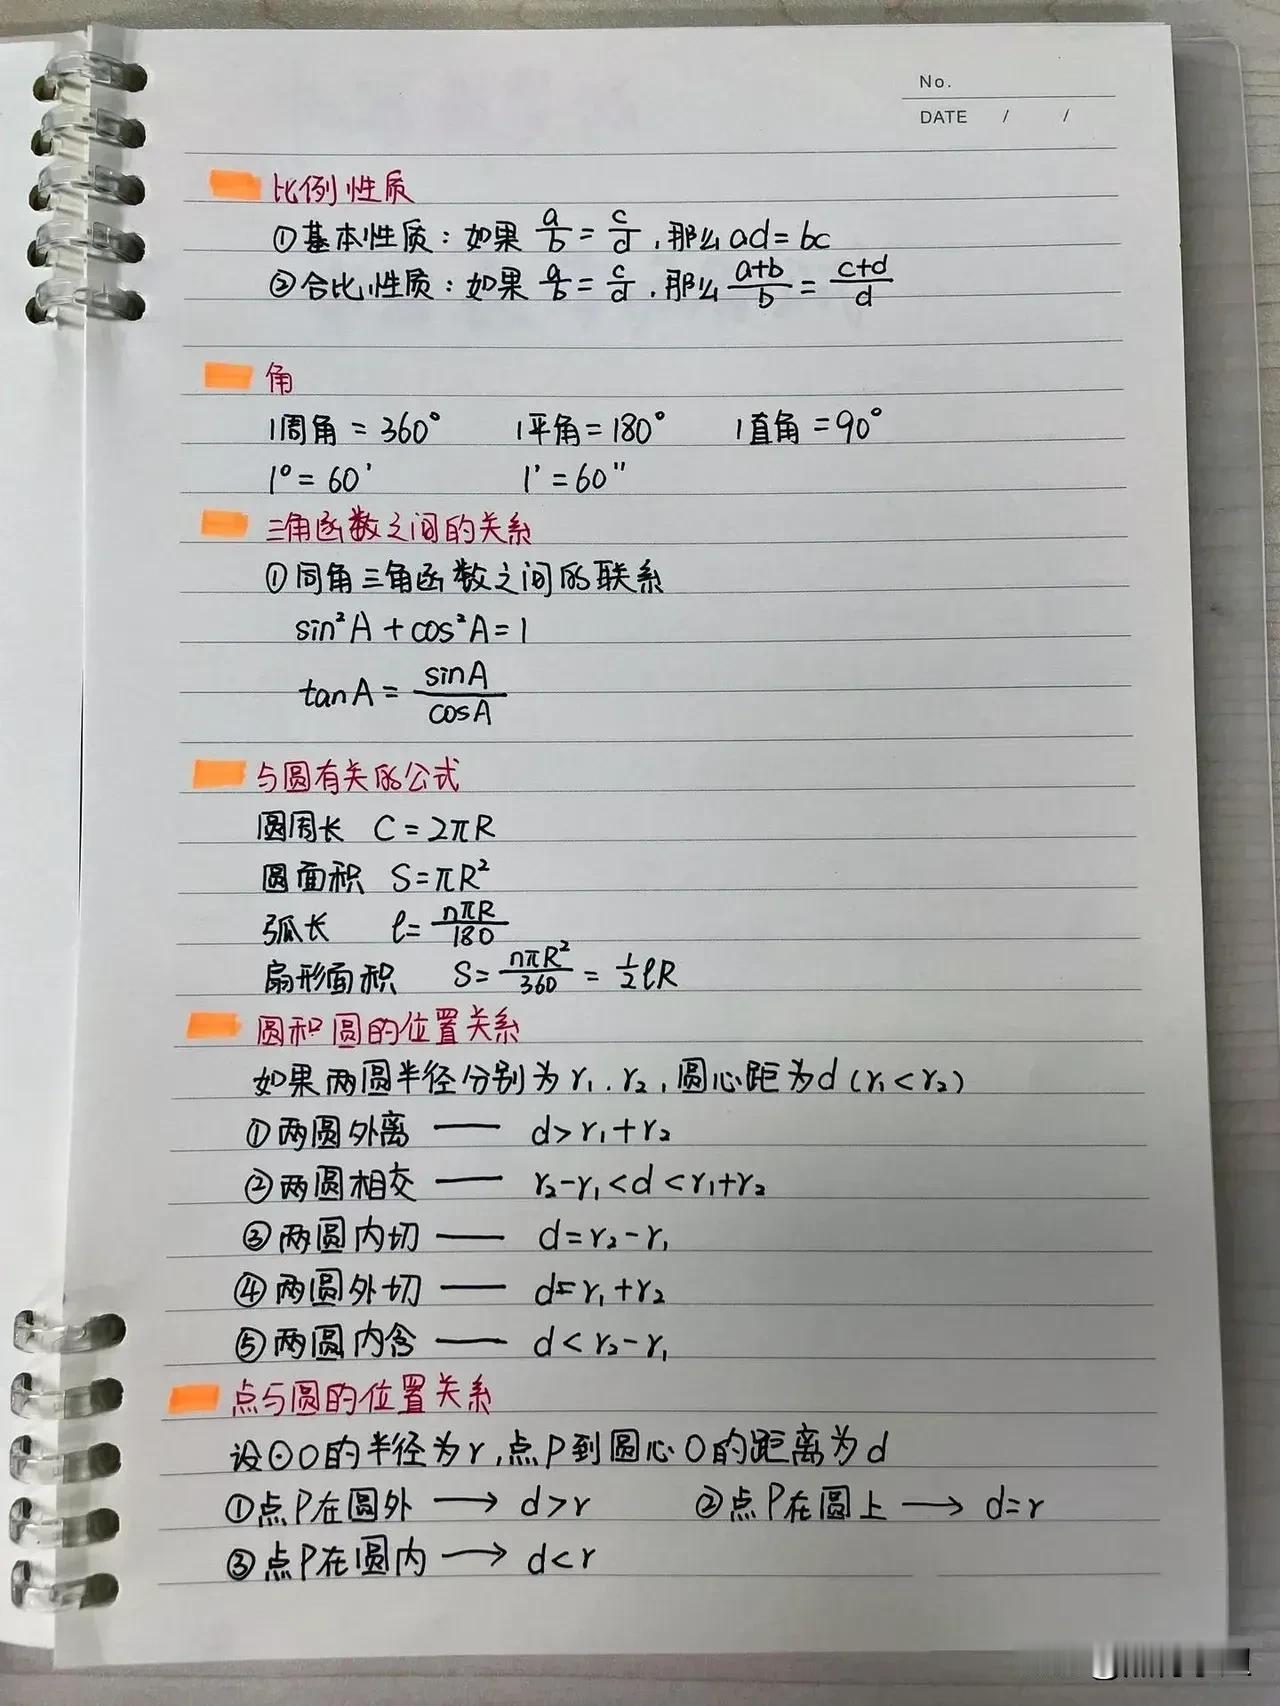 No.
DATE / /
比例性质
①基本性质：如果 a/b = c/d，那么 ad = bc
②合比性质：如果 a/b = c/d，那么 (a+b)/b = (c+d)/d
角
1周角 = 360° 1平角 = 180° 1直角 = 90°
1° = 60′ 1′ = 60″
三角函数之间的关系
①同角三角函数之间的联系
sin²A + cos²A = 1
tanA = sinA/cosA
与圆有关的公式
圆周长 C = 2πR
圆面积 S = πR²
弧长 ℓ = nπR/180
扇形面积 S = nπR²/360 = 1/2 ℓR
圆和圆的位置关系
如果两圆半径分别为 r₁、r₂，圆心距为d (r₁ < r₂)
①两圆外离 —— d > r₁ + r₂
②两圆相交 —— r₂ - r₁ < d < r₁ + r₂
③两圆内切 —— d = r₂ - r₁
④两圆外切 —— d = r₁ + r₂
⑤两圆内含 —— d < r₂ - r₁
点与圆的位置关系
设⊙O的半径为r，点P到圆心O的距离为d
①点P在圆外 → d > r ②点P在圆上 → d = r
③点P在圆内 → d < r